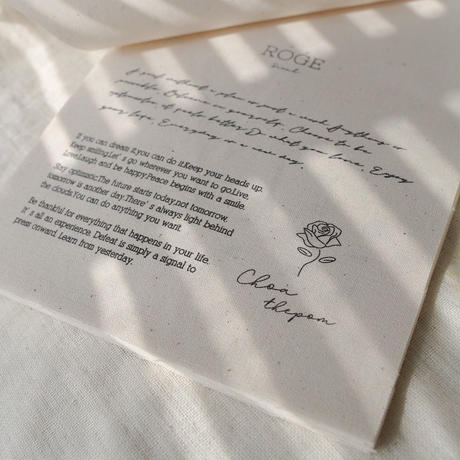 ROGE
A goal without a plan is just a wish. Anything is
possible. Believe in yourself. Choose to be
optimistic, it feels better. Do what you love. Enjoy
your life. Everyday is a new day.
If you can dream it,you can do it.Keep your heads up.
Keep smiling.Let' s go wherever you want to go.Live,
Love,Laugh and be happy.Peace begins with a smile.
Stay optimistic.The future starts today,not tomorrow.
tomorrow is another day.There' s always light behind
the clouds.You can do anything you want.
Be thankful for everything that happens in your life.
It' s all an experience. Defeat is simply a signal to
press onward. Learn from yesterday.
Choa
thepom